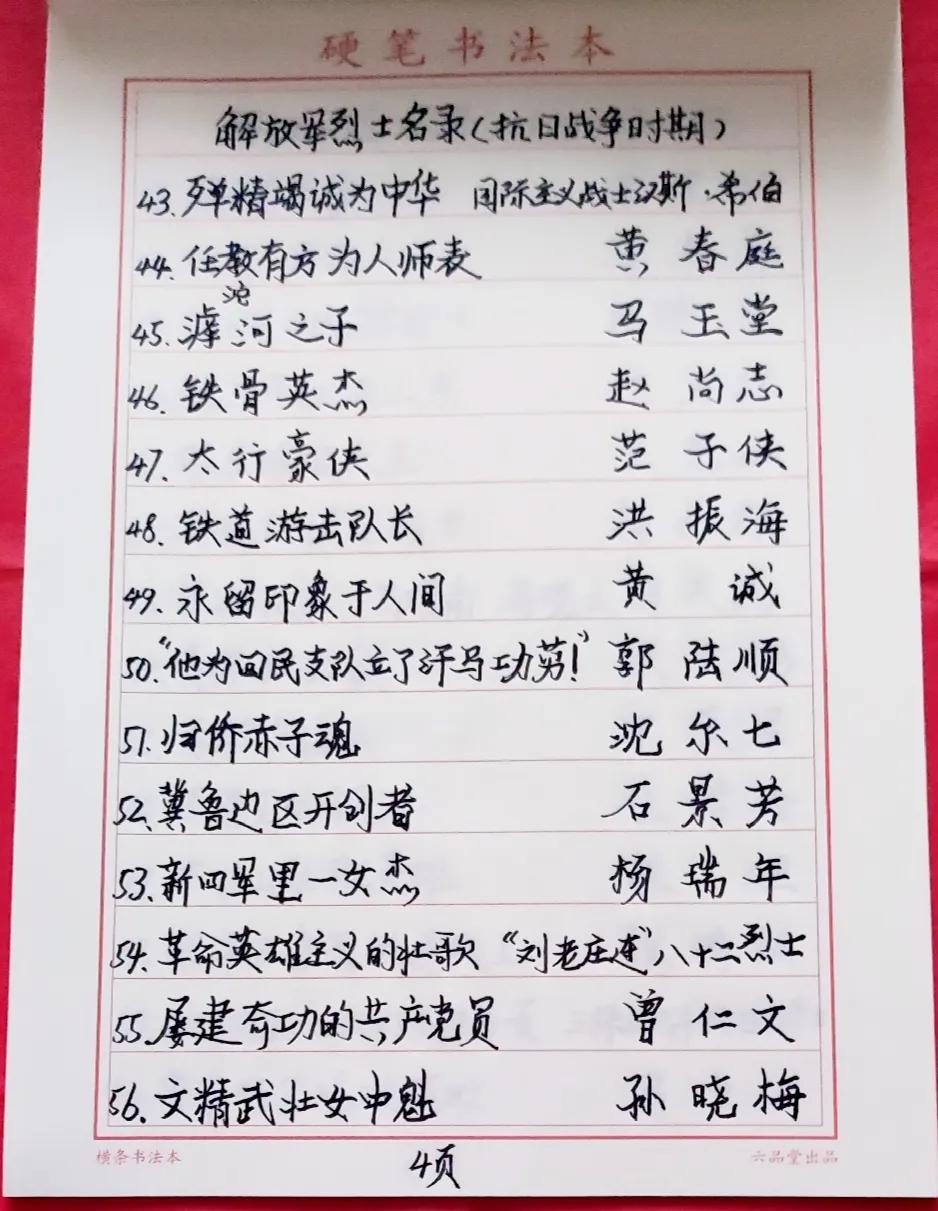 硬笔书法本
解放军烈士名录(抗日战争时期)
43.殚精竭诚为中华 国际主义战士汉斯·希伯
44.任教有方为人师表 黄春庭
45.滹沱河之子 马玉堂
46.铁骨英杰 赵尚志
47.太行豪侠 范子侠
48.铁道游击队长 洪振海
49.永留印象于人间 黄诚
50."他为回民支队立了汗马功劳!" 郭陆顺
51.归侨赤子魂 沈尔七
52.冀鲁边区开创者 石景芳
53.新四军里一女杰 杨瑞年
54.革命英雄主义的壮歌 "刘老庄连"八十二烈士
55.屡建奇功的共产党员 曾仁文
56.文精武壮女中魁 孙晓梅
横条书法本 4页 六品堂出品